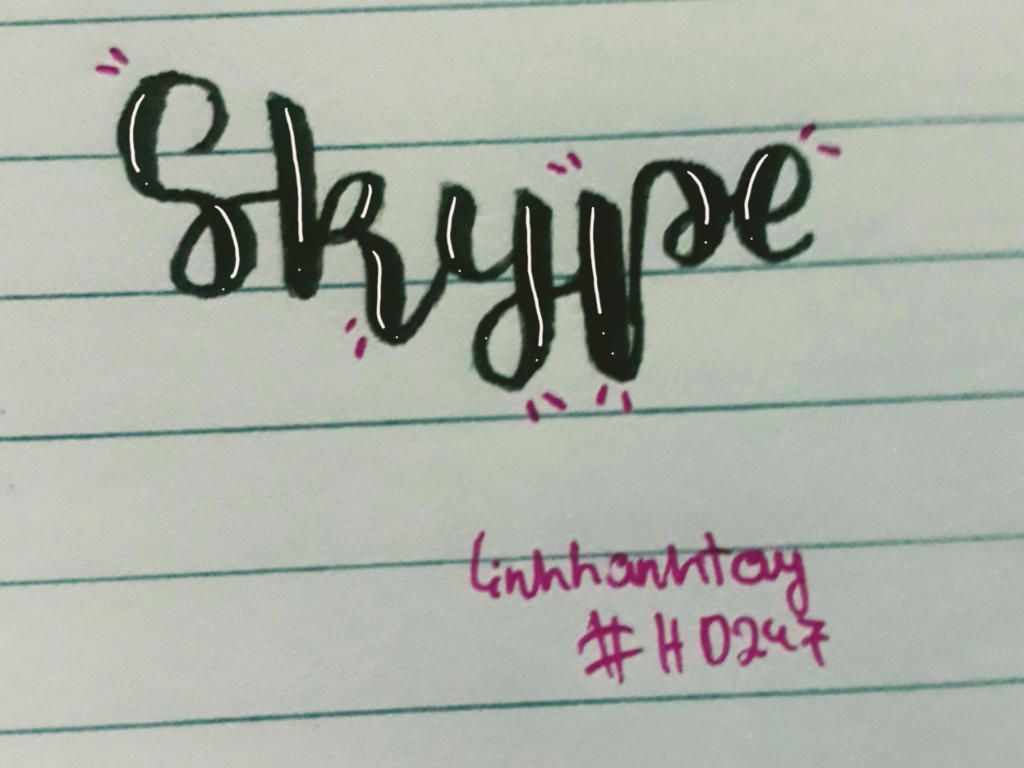 Skype
linhhanhtay
#HD247